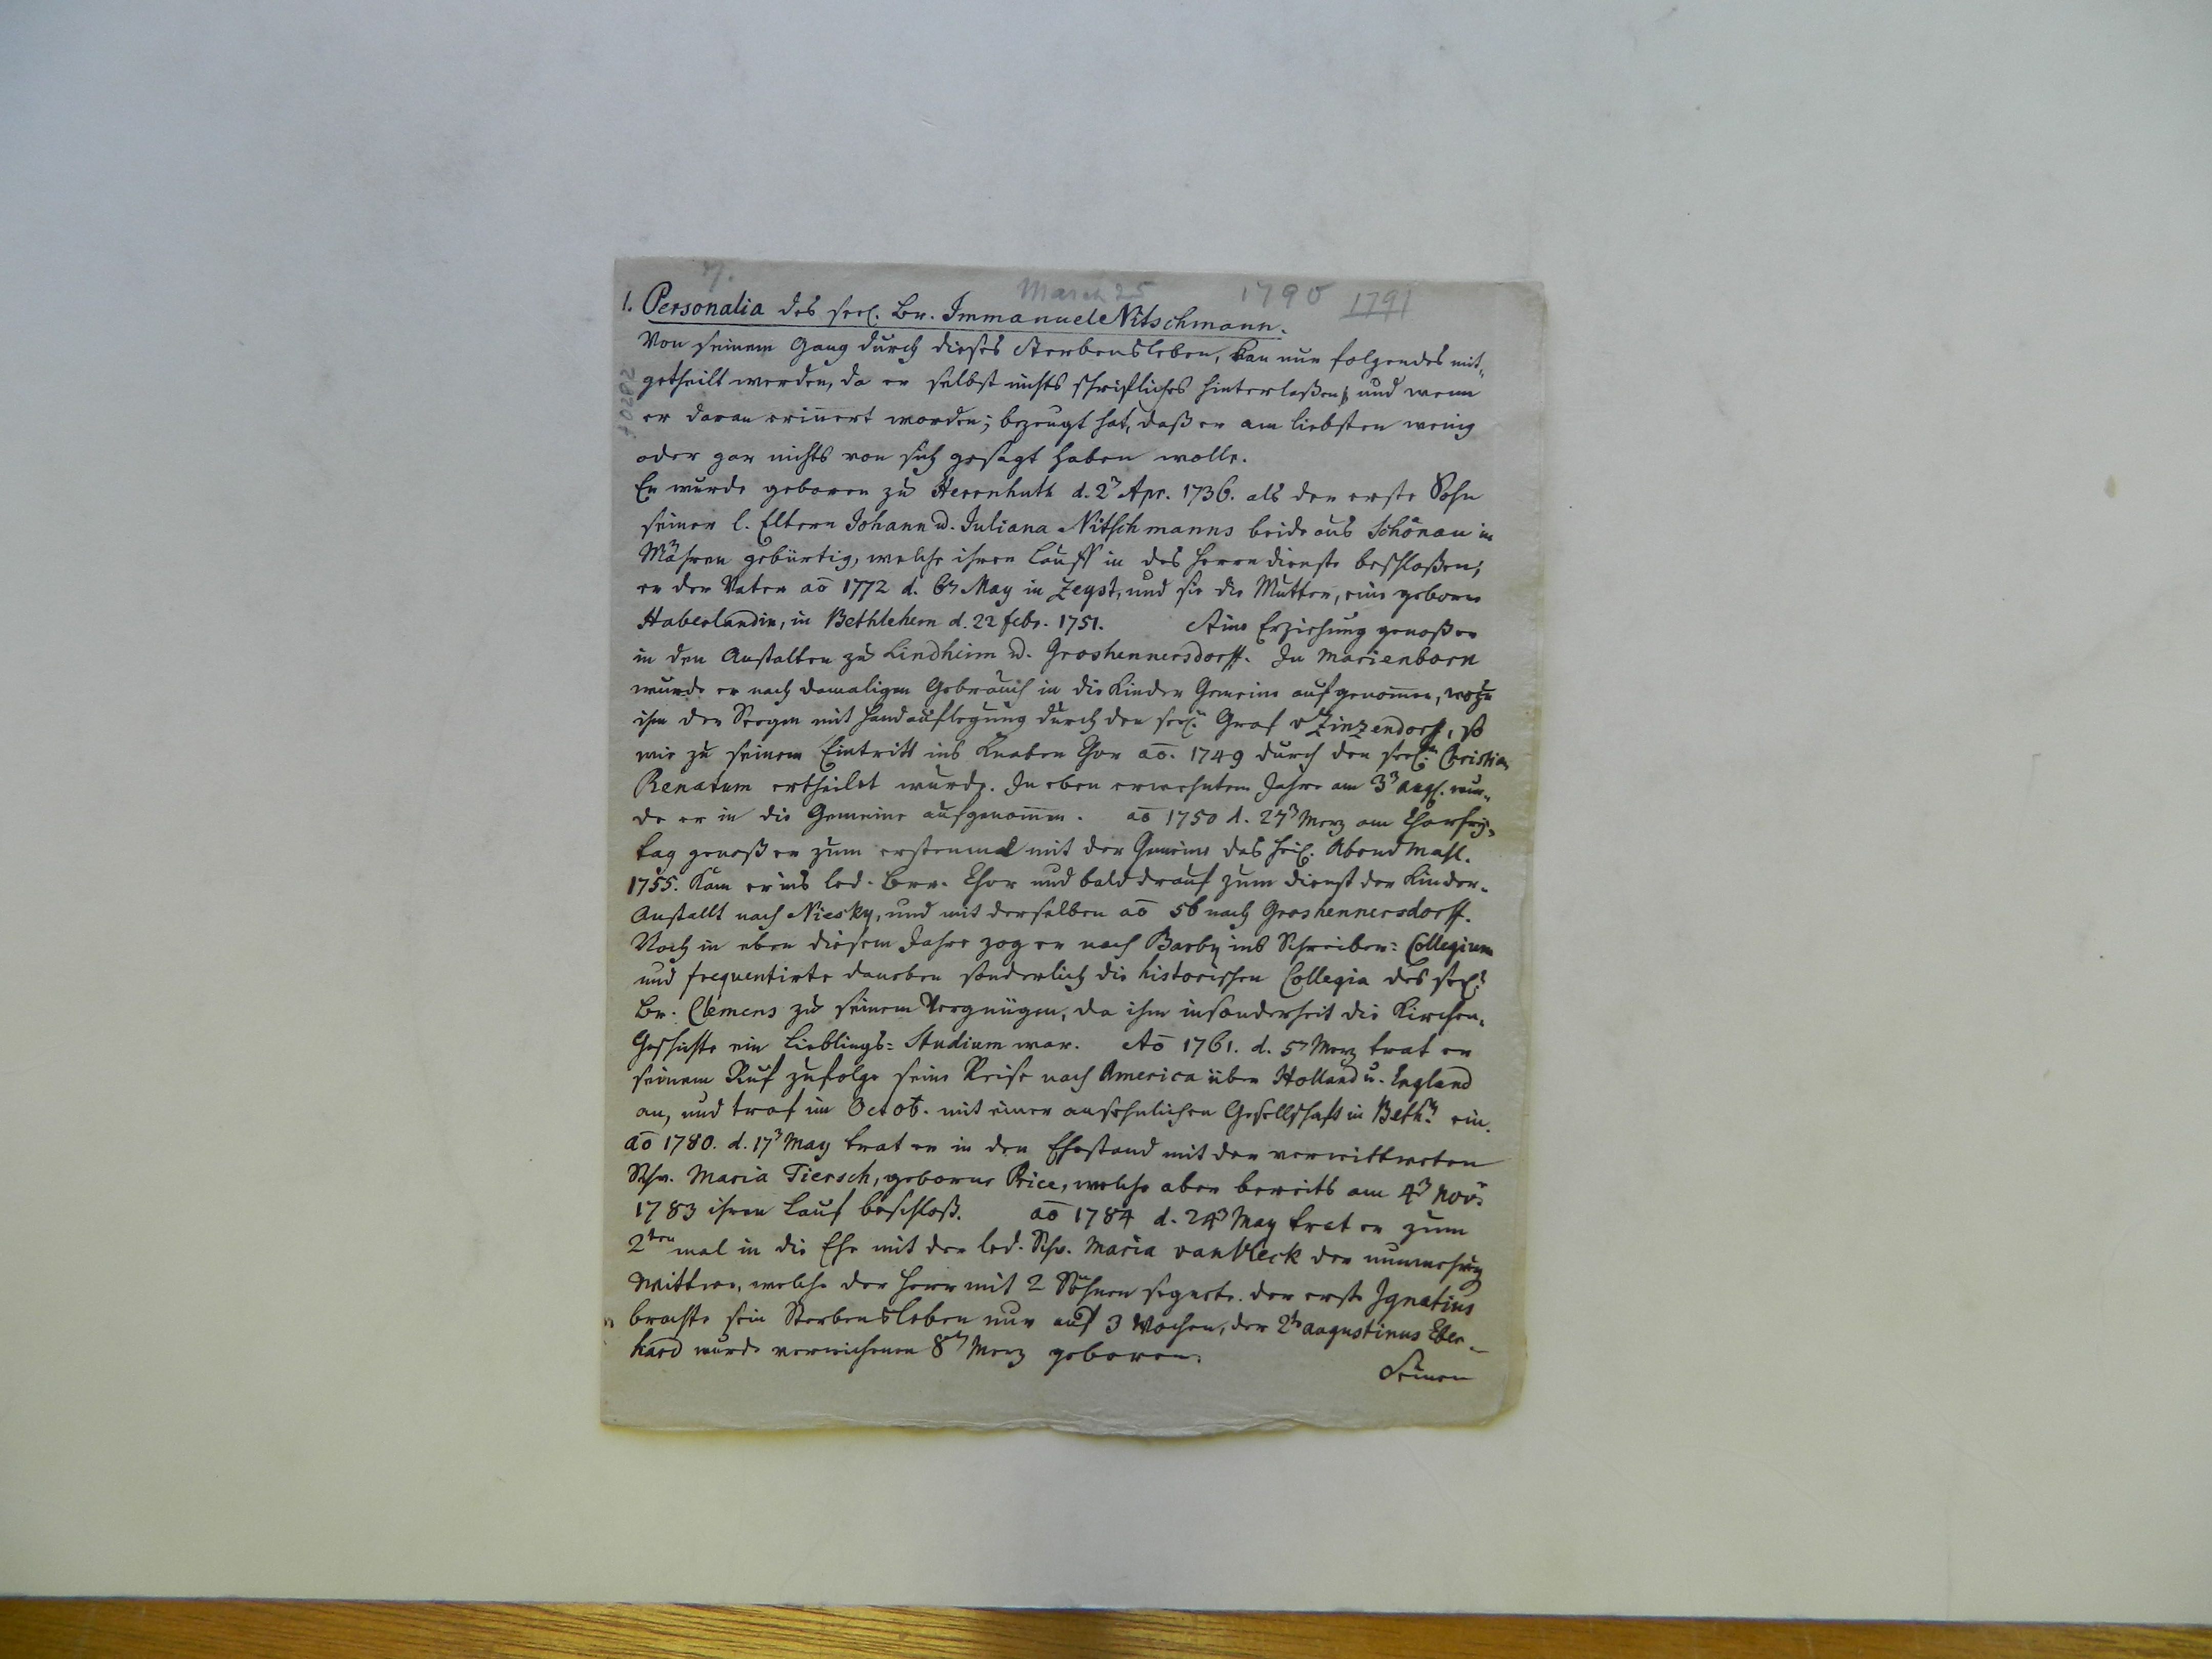 7. March 25 1790 1791
1. Personalia des seel. Br. Immanuel Nitschmann.
Von seinem Gang durch dieses Sterbensleben, kan nur folgendes mit„
getheilt werden, da er selbst nichts schriftliches hinterlaßen, und wenn
er daran erinnert worden; bezeugt hat, daß er am liebsten wenig
oder gar nichts von sich gesagt haben wolle.
Er wurde geboren zu Herrnhuth d. 2ⁿ Apr. 1736. als der erste Sohn
seiner l. Eltern Johann u. Juliana Nitschmanns beide aus Schönau in
Mähren gebürtig, welche ihren Lauff in des Herrn dienste beschloßen;
er der Vater aō 1772 d. 6ⁿ May in Zeyst, und sie die Mutter, eine geborne
Haberlandin, in Bethlehem d. 22 febr. 1751. Seine Erziehung genoß er
in den Anstalten zu Lindheim u. Groshennersdorff. In Marienborn
wurde er nach damaligen Gebrauch in die Kinder Gemeine aufgenom̄en, wozu
ihm der Seegen mit Handauflegung durch den seel. Graf v Zinzendorff, so
wie zu seinem Eintritt ins Knaben Chor aō. 1749 durch den seel. Christian
Renatum ertheilet wurde. In eben erwehntem Jahre am 3ⁿ Aug. wur„
de er in die Gemeine aufgenom̄en. aō 1750 d. 27ⁿ Merz am Charfrey„
tag genoß er zum erstenmal mit der Gemeine das heil. Abend Mahl.
1755. Kam er ins led. Brr. Chor und bald drauf zum Dienst der Kinder„
Anstallt nach Niesky, und mit derselben aō 56 nach Groshennersdorff.
Noch in eben diesem Jahre zog er nach Barby ins Schreiber= Collegium
und frequentirte daneben sonderlich die historischen Collegia des seel.
Br. Clemens zu seinem Vergnügen, da ihm insonderheit die Kirchen„
Geschichte ein Lieblings= Studium war. Aō 1761. d. 5ⁿ Merz trat er
seinem Ruf zufolge seine Reise nach America über Holland u. England
an, und traf im Octob. mit einer ansehnlichen Gesellschaft in Bethᵐ. ein.
aō 1780. d. 17ⁿ May trat er in den Ehestand mit der verwittweten
Schw. Maria Tiersch, geborne Price, welche aber bereits am 4ⁿ Novʳ.
1783 ihren Lauf beschloß. aō 1784 d. 24ⁿ May trat er zum
2ᵗᵉⁿ mal in die Ehe mit der led. Schw. Maria van Vleck der nunmehrig
Wittwe, welche der Herr mit 2 Söhnen segnete. der erste Ignatius
brachte sein Sterbensleben nur auf 3 Wochen, der 2ᵗᵉ Augustinus Eber„
hard wurde verwichenen 8ⁿ Merz geboren.
Seinen